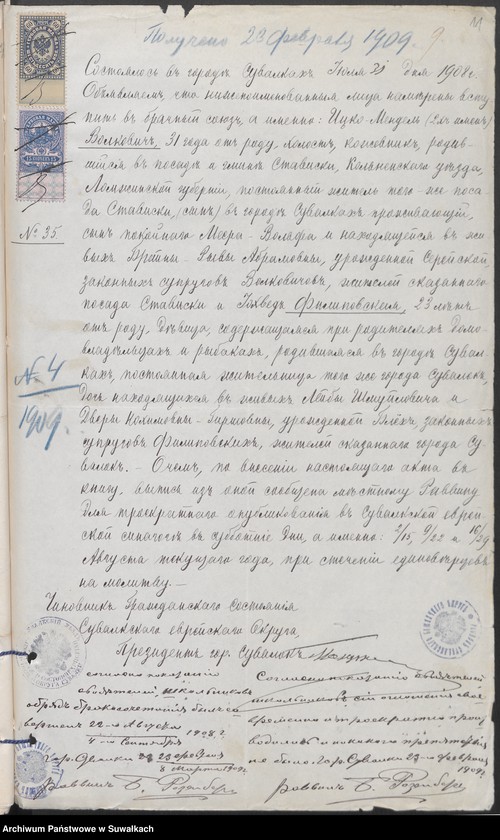 Получено 23 Февраля 1909.
Состоялось въ городѣ Сувалкахъ Іюля 21 дня 1908 г.
Объявляемъ, что нижепоименованныя лица намѣрены всту
пить въ брачный союзъ, а именно: Ицко-Мендель (2хъ именъ)
Волковичъ, 31 года отъ роду, холостъ, родив-
шійся въ посадѣ и гминѣ Стависки, Кольненскаго уѣзда,
Ломжинской губерніи, постоянный житель того-же поса
да Стависки, въ городѣ Сувалкахъ проживающій,
сынъ покойнаго Меера-Вольфа и находящейся въ жи
выхъ Брайны-Ривы Абрамовны, урожденной Серейской,
законныхъ супруговъ Волковичовъ, жителей сказаннаго
посада Стависки и Іохведъ Филиповская, 23 лѣтъ
отъ роду, дѣвица, содержащаяся при родителяхъ домо-
владѣльцахъ и рыбакахъ, родившаяся въ городѣ Сувал-
кахъ, постоянная жительница того же города Сувалокъ,
дочь находящихся въ живыхъ Лейбы Шмуйловича и
Дворы, урожденной, законныхъ
супруговъ Филиповскихъ, жителей сказаннаго города Су
валокъ. - О чемъ, по внесеніи настоящаго акта въ
книгу, выпись изъ оной сообщена мѣстному Раввину
для троекратнаго опубликованія въ Сувалкской еврей-
ской синагогѣ въ субботніе дни, а именно: 2/15, 9/22 и 16/29
Августа текущаго года, при стеченіи единовѣрцевъ
на молитву. -
Чиновникъ Гражданскаго Состоянія
Сувалкскаго еврейскаго Округа,
Президентъ гор. Сувалокъ
№ 35
№ 4
1909.
Согласно показанію
свидѣтелей школьниковъ
обрядъ бракосочетанія былъ со
вершенъ 22-го Августа
4-го Сентября 1908 г.
Гор. Сувалки 23 февраля
8 Марта 1909 г.
Раввинъ Б. Розенбергъ
Согласно показанію свидѣтелей
школьниковъ
временно и троекратно произ
водились и никакого препятствія
не было. Гор. Сувалки 23-го Февраля
1909 г.
Раввинъ Б. Розенбергъ
Archiwum Państwowe w Suwałkach